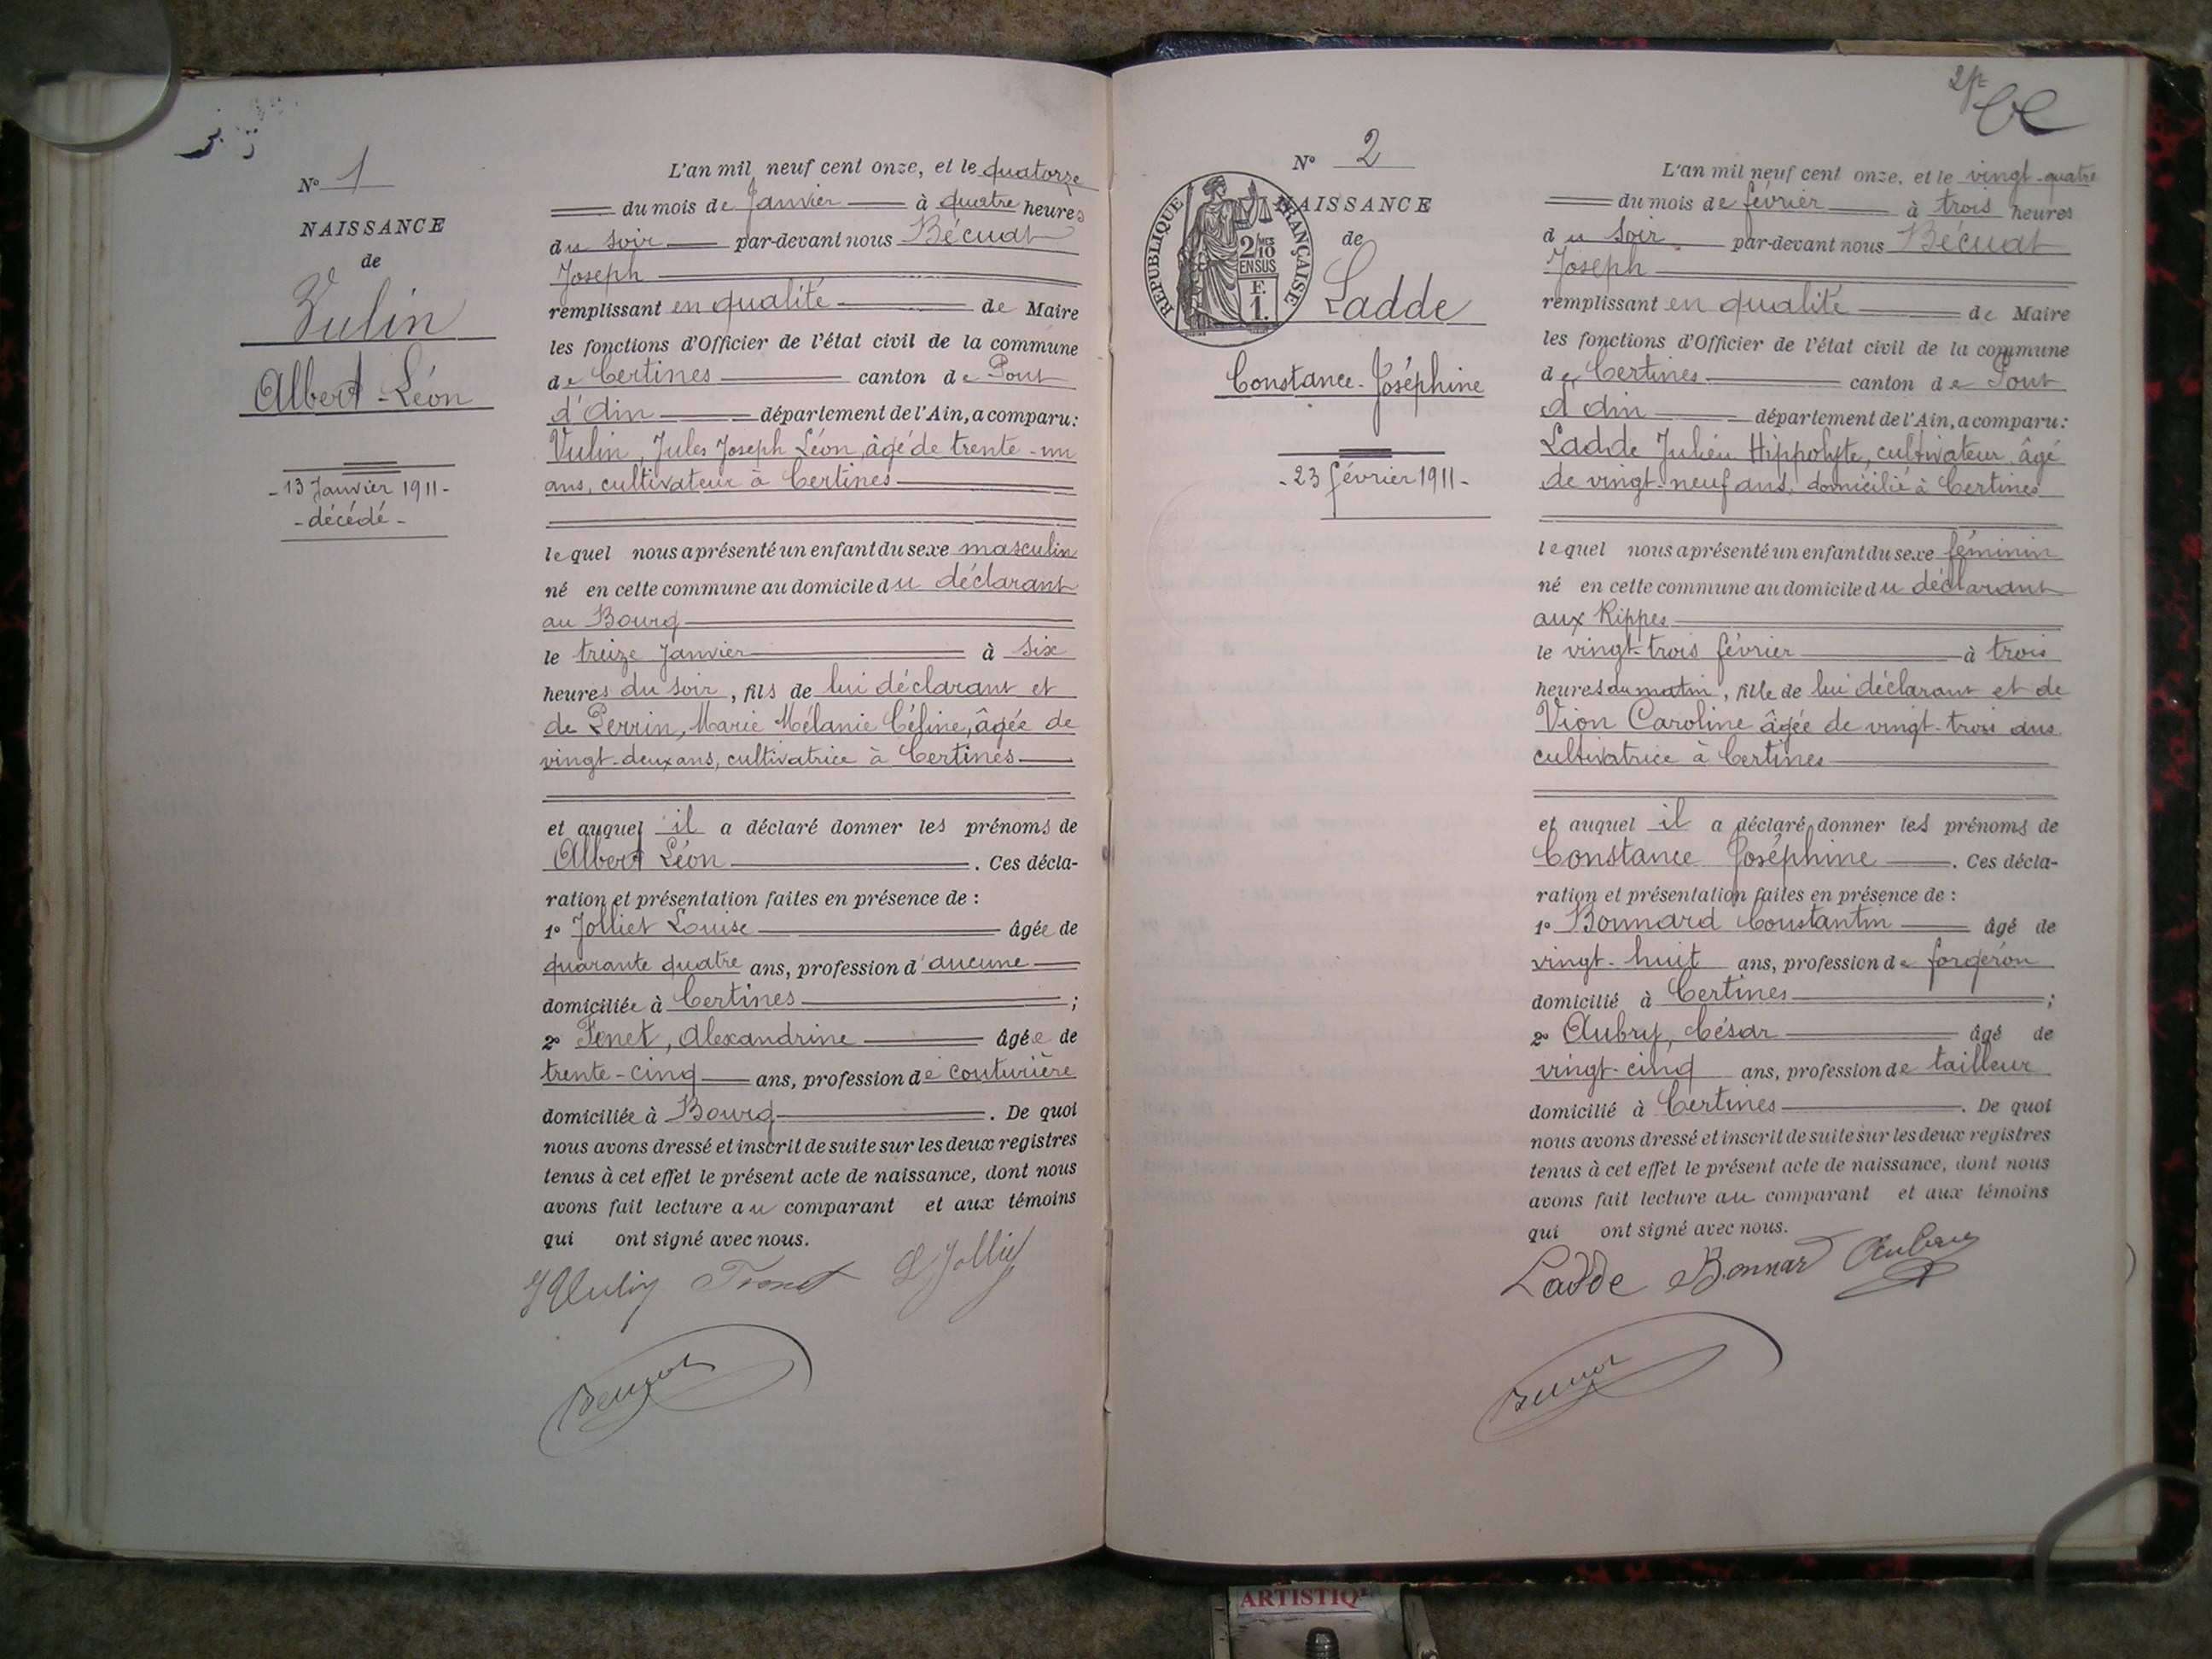 N° 1
NAISSANCE
de
Vulin
Albert-Léon
- 13 Janvier 1911 -
- décédé -
L'an mil neuf cent onze, et le quatorze
du mois de Janvier à quatre heures
du soir par-devant nous Bécuat
Joseph
remplissant en qualité de Maire
les fonctions d'Officier de l'état civil de la commune
de Certines canton de Pont
d'Ain département de l'Ain, a comparu:
Vulin, Jules Joseph Léon, âgé de trente-un
ans, cultivateur à Certines
lequel nous a présenté un enfant du sexe masculin
né en cette commune au domicile du déclarant
au Bourg
le treize Janvier à six
heures du soir, fils de lui déclarant et
de Perrin, Marie Mélanie Céline, âgée de
vingt-deux ans, cultivatrice à Certines
et auquel il a déclaré donner les prénoms de
Albert Léon. Ces décla-
ration et présentation faites en présence de :
1° Jolliet Louise âgée de
quarante quatre ans, profession d'aucune
domiciliée à Certines ;
2° Fenet, Alexandrine âgée de
trente-cinq ans, profession de couturière
domiciliée à Bourg. De quoi
nous avons dressé et inscrit de suite sur les deux registres
tenus à cet effet le présent acte de naissance, dont nous
avons fait lecture au comparant et aux témoins
qui ont signé avec nous.
N° 2
NAISSANCE
de
RÉPUBLIQUE FRANÇAISE
2/10 MES
EN SUS
F.
1.
Ladde
Constance-Joséphine
- 23 février 1911 -
L'an mil neuf cent onze, et le vingt-quatre
du mois de février à trois heures
du soir par-devant nous Bécuat
Joseph
remplissant en qualité de Maire
les fonctions d'Officier de l'état civil de la commune
de Certines canton de Pont
d'Ain département de l'Ain, a comparu:
Ladde Julien Hippolyte, cultivateur âgé
de vingt-neuf ans, domicilié à Certines
lequel nous a présenté un enfant du sexe féminin
né en cette commune au domicile du déclarant
aux Rippes
le vingt-trois février à trois
heures du matin, fille de lui déclarant et de
Vion Caroline âgée de vingt-trois ans
cultivatrice à Certines
et auquel il a déclaré donner les prénoms de
Constance Joséphine. Ces décla-
ration et présentation faites en présence de :
1° Bonnard Constantin âgé de
vingt-huit ans, profession de forgeron
domicilié à Certines ;
2° Aubry, César âgé de
vingt-cinq ans, profession de tailleur
domicilié à Certines. De quoi
nous avons dressé et inscrit de suite sur les deux registres
tenus à cet effet le présent acte de naissance, dont nous
avons fait lecture au comparant et aux témoins
qui ont signé avec nous.
Ladde Bonnard Aubry
ARTISTIQ